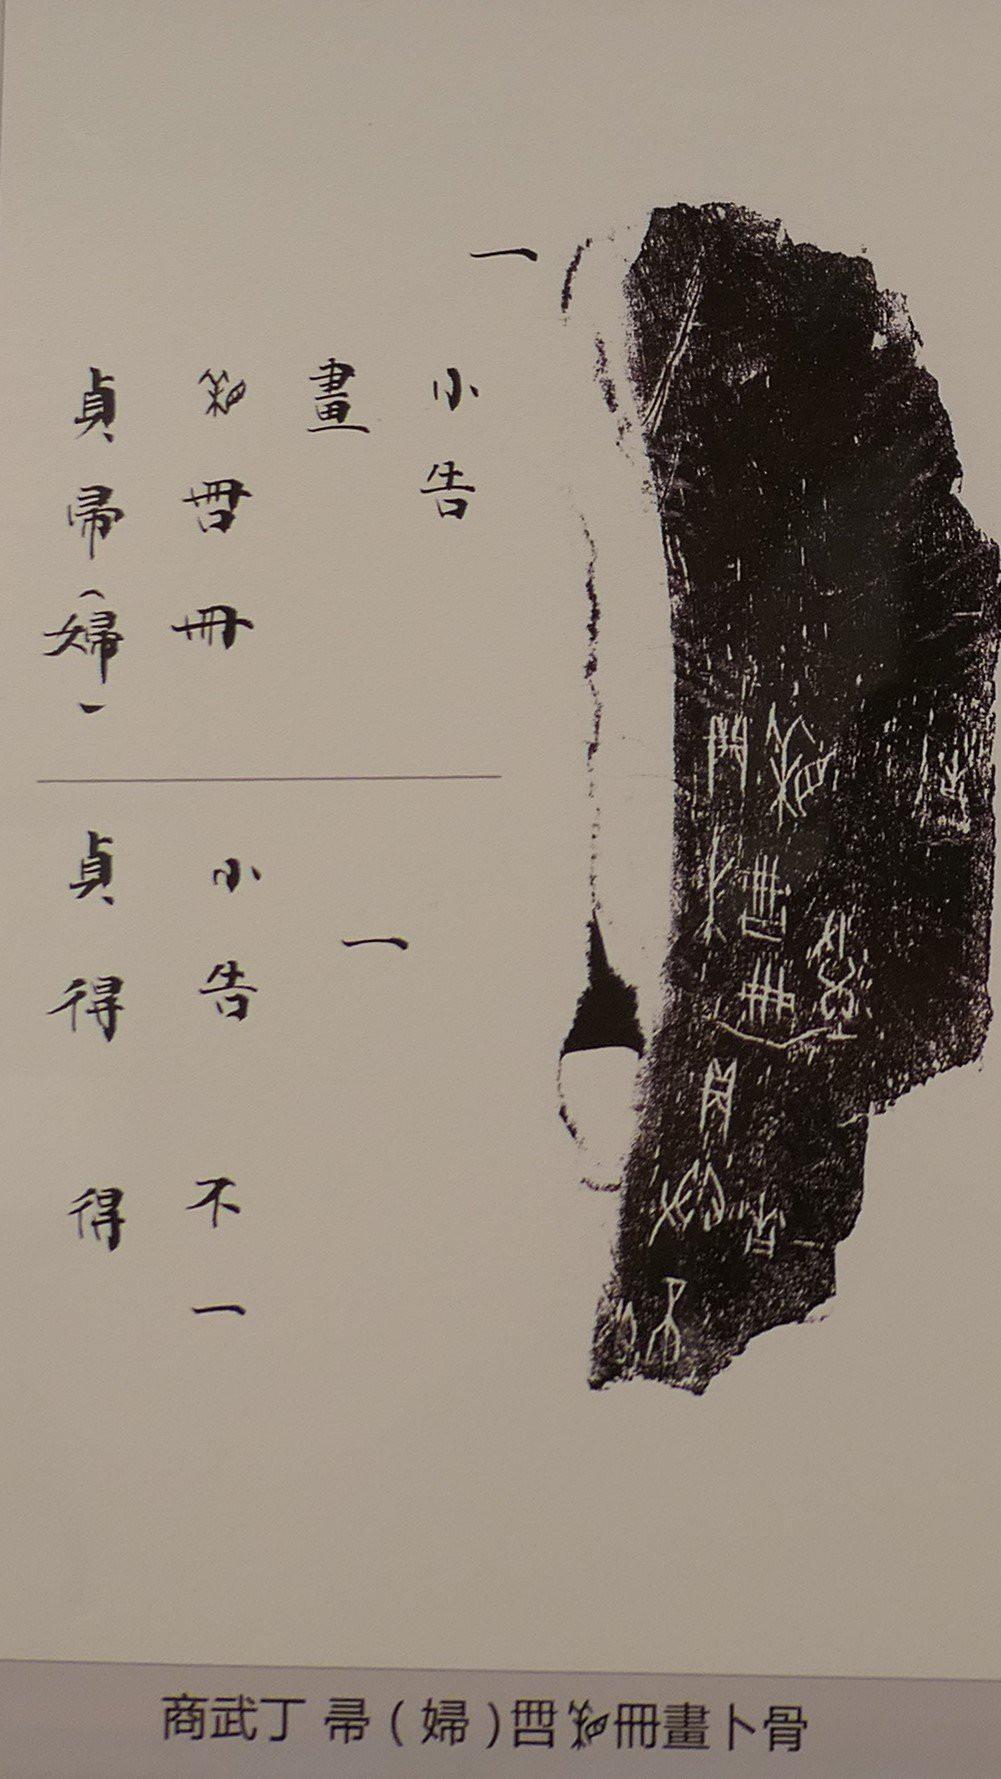 貞帚(婦)
𣌭冊
畫
小告
一
貞得 得
小告 不一
一
商武丁 帚(婦)𣌭冊畫卜骨